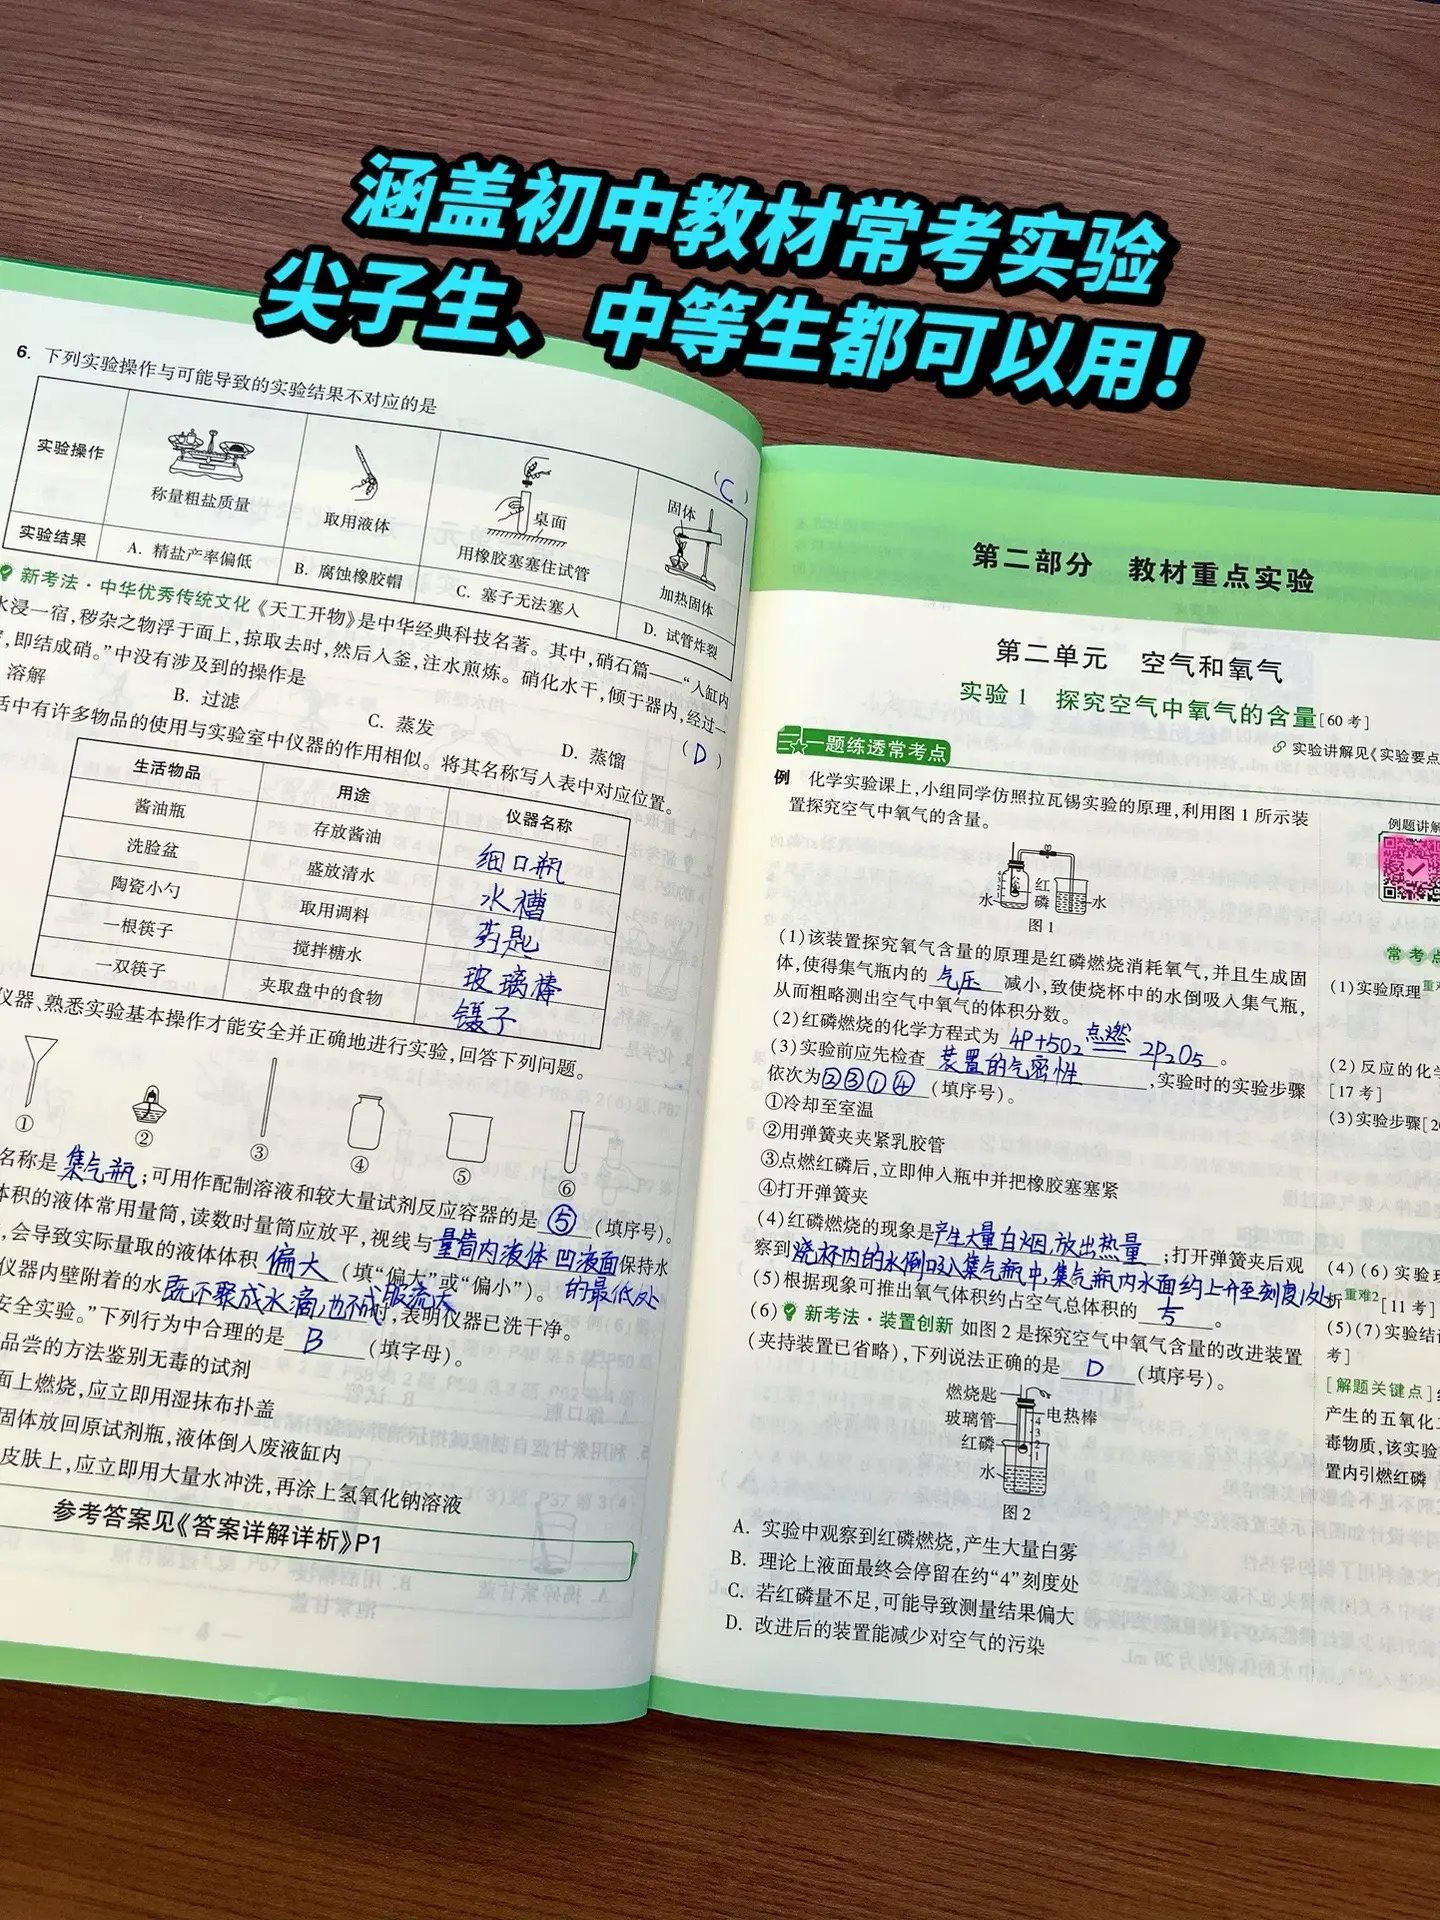 涵盖初中教材常考实验
尖子生、中等生都可以用!
6. 下列实验操作与可能导致的实验结果不对应的是
( C )
实验操作
称量粗盐质量
取用液体
桌面
用橡胶塞塞住试管
固体
加热固体
实验结果
A. 精盐产率偏低
B. 腐蚀橡胶帽
C. 塞子无法塞入
D. 试管炸裂
新考法·中华优秀传统文化《天工开物》是中华经典科技名著。其中,硝石篇——“入缸内
水浸一宿,秽杂之物浮于面上,掠取去时,然后入釜,注水煎炼。硝化水干,倾于器内,经过一
,即结成硝。”中没有涉及到的操作是
( D )
溶解
B. 过滤
C. 蒸发
D. 蒸馏
活中有许多物品的使用与实验室中仪器的作用相似。将其名称写入表中对应位置。
生活物品 用途 仪器名称
酱油瓶 存放酱油 细口瓶
洗脸盆 盛放清水 水槽
陶瓷小勺 取用调料 药匙
一根筷子 搅拌糖水 玻璃棒
一双筷子 夹取盘中的食物 镊子
仪器、熟悉实验基本操作才能安全并正确地进行实验,回答下列问题。
① ② ③ ④ ⑤ ⑥
名称是 集气瓶 ;可用作配制溶液和较大量试剂反应容器的是 ⑤ (填序号)。
体积的液体常用量筒,读数时量筒应放平,视线与量筒内液体凹液面保持水
的最低处
,会导致实际量取的液体体积 偏大 (填“偏大”或“偏小”)。
仪器内壁附着的水既不聚成水滴,也不成股流下时,表明仪器已洗干净。
安全实验。”下列行为中合理的是 B (填字母)。
品尝的方法鉴别无毒的试剂
面上燃烧,应立即用湿抹布扑盖
固体放回原试剂瓶,液体倒入废液缸内
皮肤上,应立即用大量水冲洗,再涂上氢氧化钠溶液
参考答案见《答案详解详析》P1
第二部分 教材重点实验
第二单元 空气和氧气
实验1 探究空气中氧气的含量[60考]
实验讲解见《实验要点
一题练透常考点
例 化学实验课上,小组同学仿照拉瓦锡实验的原理,利用图1所示装
置探究空气中氧气的含量。
例题讲解
红
磷
水
水
图1
(1)该装置探究氧气含量的原理是红磷燃烧消耗氧气,并且生成固
体,使得集气瓶内的 气压 减小,致使烧杯中的水倒吸入集气瓶,
从而粗略测出空气中氧气的体积分数。
(2)红磷燃烧的化学方程式为 4P+5O2 点燃 == 2P2O5 。
(3)实验前应先检查 装置的气密性 ,实验时的实验步骤
依次为②③①④(填序号)。
①冷却至室温
②用弹簧夹夹紧乳胶管
③点燃红磷后,立即伸入瓶中并把橡胶塞塞紧
④打开弹簧夹
(4)红磷燃烧的现象是产生大量白烟,放出热量 ;打开弹簧夹后观
察到烧杯内的水倒吸入集气瓶中,集气瓶内水面约上升至刻度1处
(5)根据现象可推出氧气体积约占空气总体积的 1/5 。
(6) 新考法·装置创新 如图2是探究空气中氧气含量的改进装置
(夹持装置已省略),下列说法正确的是 D (填序号)。
燃烧匙
玻璃管
红磷
水
电热棒
4
3
2
1
图2
A. 实验中观察到红磷燃烧,产生大量白雾
B. 理论上液面最终会停留在约“4”刻度处
C. 若红磷量不足,可能导致测量结果偏大
D. 改进后的装置能减少对空气的污染
常考点
(1)实验原理
(2)反应的化学
[17考]
(3)实验步骤[2
(4)(6)实验现
析 重难2 [11考]
(5)(7)实验结
考]
[解题关键点]
产生的五氧化二
毒物质,该实验
置内引燃红磷